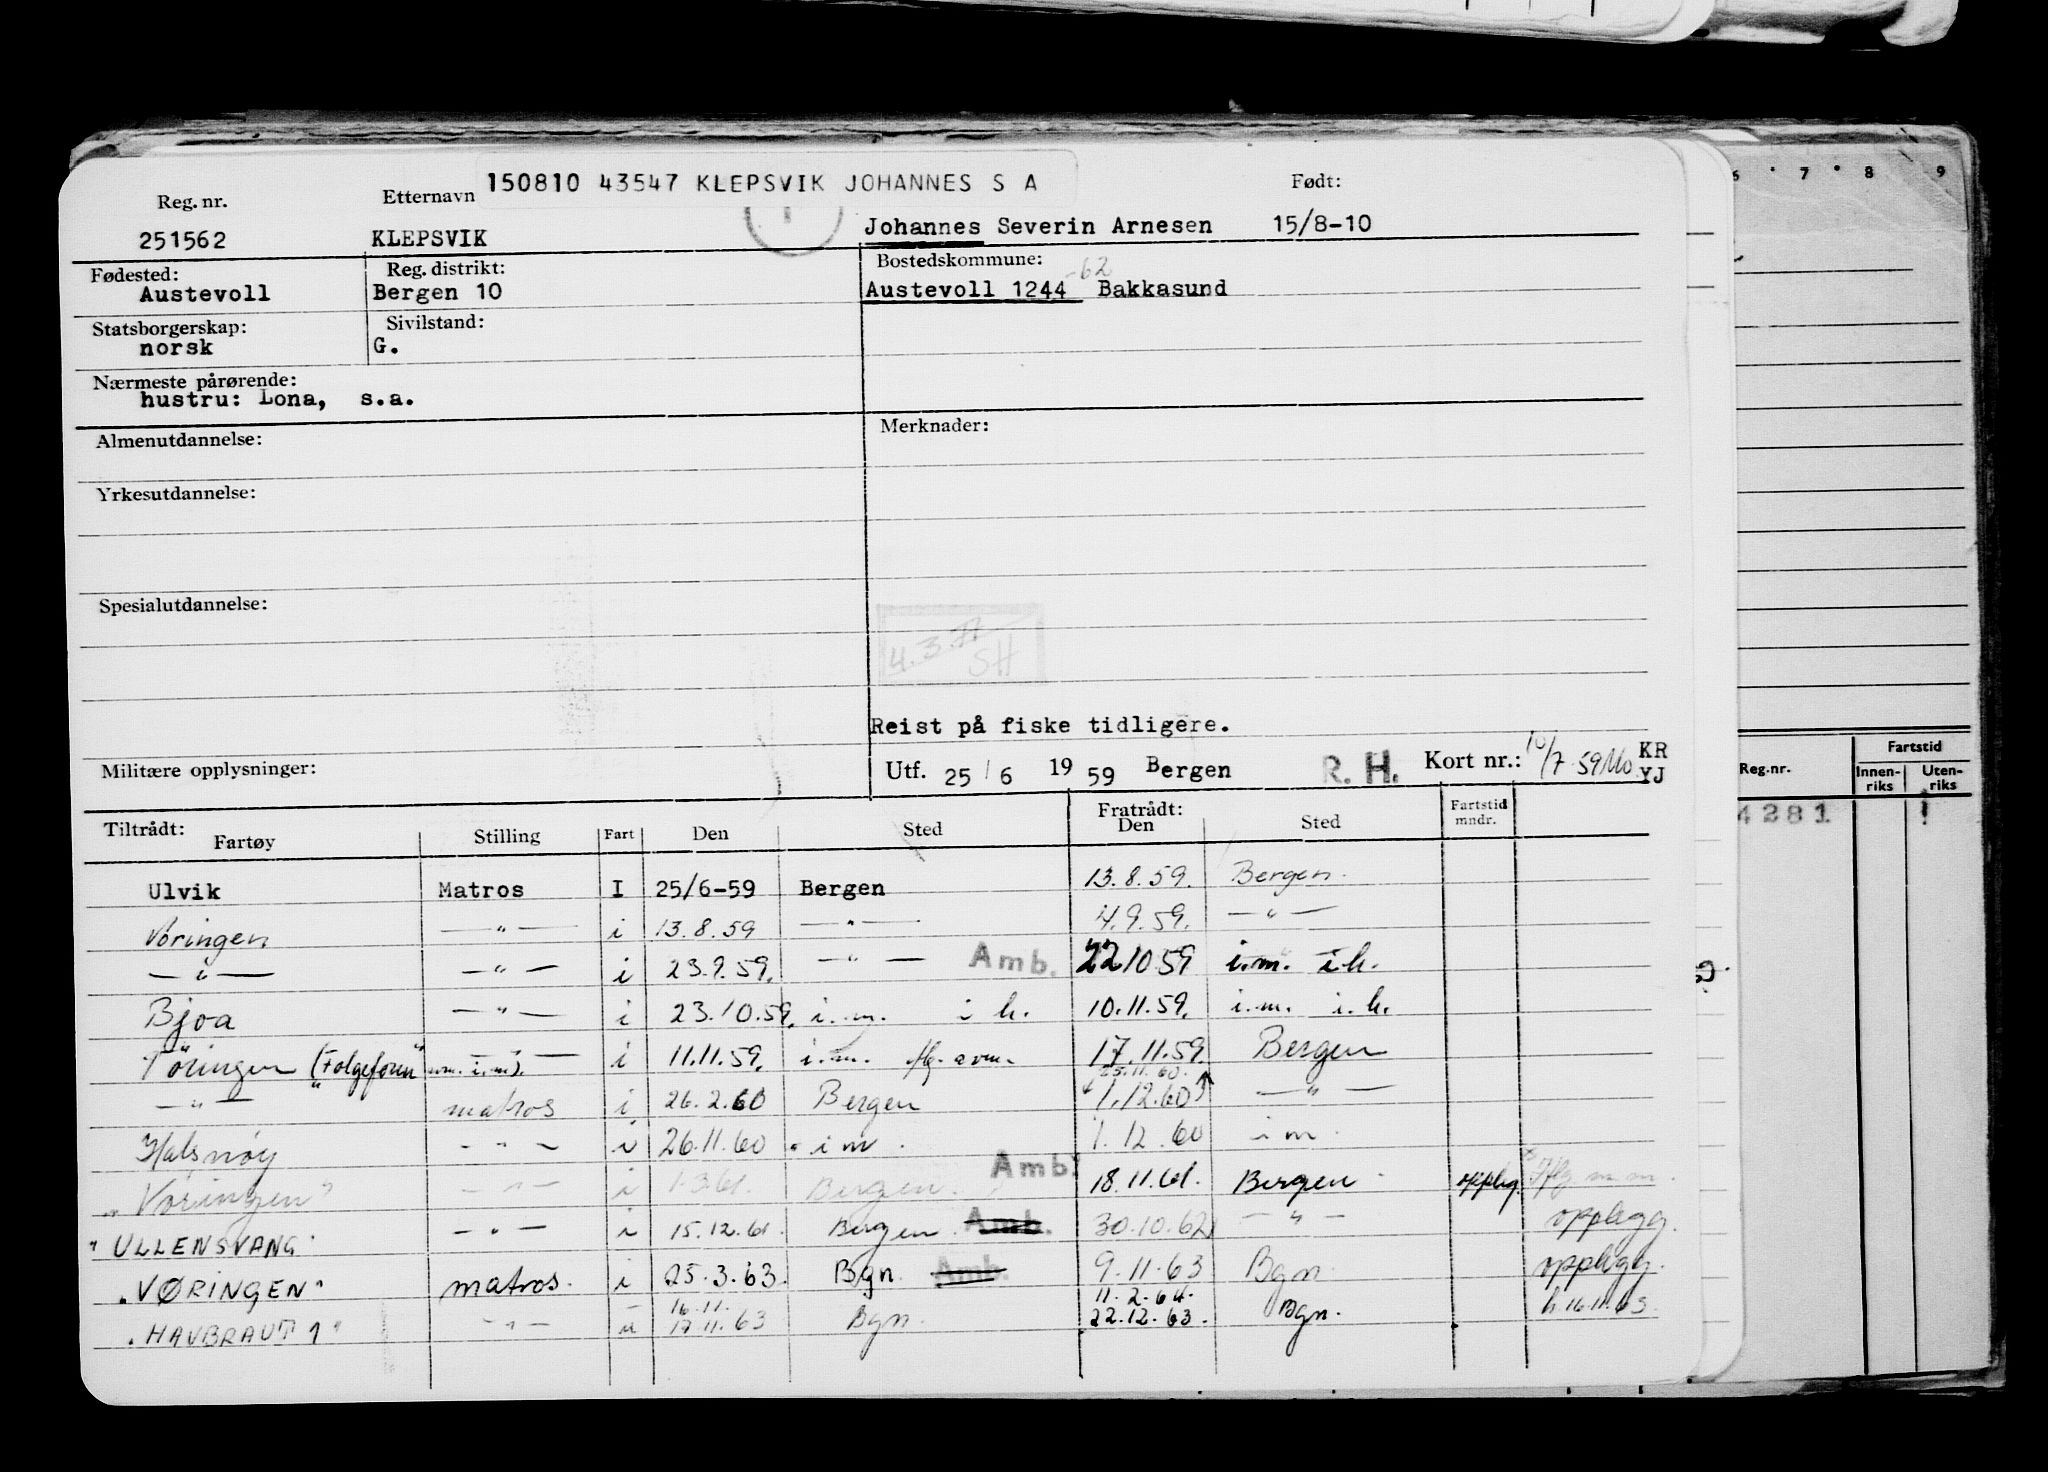 150810 43547 KLEPSVIK JOHANNES S A
Reg. nr. Etternavn Født:
251562 KLEPSVIK Johannes Severin Arnesen 15/8-10
Fødested: Reg. distrikt: Bostedskommune: -62
Austevoll Bergen 10 Austevoll 1244 Bakkasund
Statsborgerskap: Sivilstand:
norsk G.
Nærmeste pårørende:
hustru: Lona, s.a.
Almenutdannelse: Merknader:
Yrkesutdannelse:
Spesialutdannelse:
4.3.77
SH
Reist på fiske tidligere.
Militære opplysninger: Utf. 25/6 1959 Bergen R. H. Kort nr.: 10/7 59 Mo KR
YJ
Tiltrådt: Fratrådt:
Fartøy Stilling Fart Den Sted Den Sted Fartstid mndr.
Ulvik Matros I 25/6-59 Bergen 13.8.59. Bergen.
Vøringen — " — i 13.8.59 — " — 4.9.59. — " —
— " — — " — i 23.9.59. — " — Amb. 22.10.59 i.m. i.h.
Bjoa — " — i 23.10.59. i.m. i h. 10.11.59. i.m. i.h.
Vøringen ("Folgefonn" i.m). — " — i 11.11.59. i.m. 17.11.59. Bergen
25.11.60.
— " — matros i 26.2.60 Bergen 1.12.60 — " —
Halsnøy - " - i 26.11.60 i m. 1.12.60 i m.
"Vøringen" - " - i 1.3.61. Bergen. Amb. 18.11.61. Bergen. opplag.
"ULLENSVANG" - " - i 15.12.61. Bergen. Amb. 30.10.62 - " - opplegg.
"VØRINGEN" matros. i 25.3.63. Bgn. Amb. 9.11.63 Bgn. opplegg.
16.11. 11.2.64.
"HAVBRAUT 1" - " - u 17.11.63 Bgn. 22.12.63. Bgn. 16.11.63.
6 . 7 . 8 9
Reg.nr. Fartstid
Innenriks Utenriks
4281